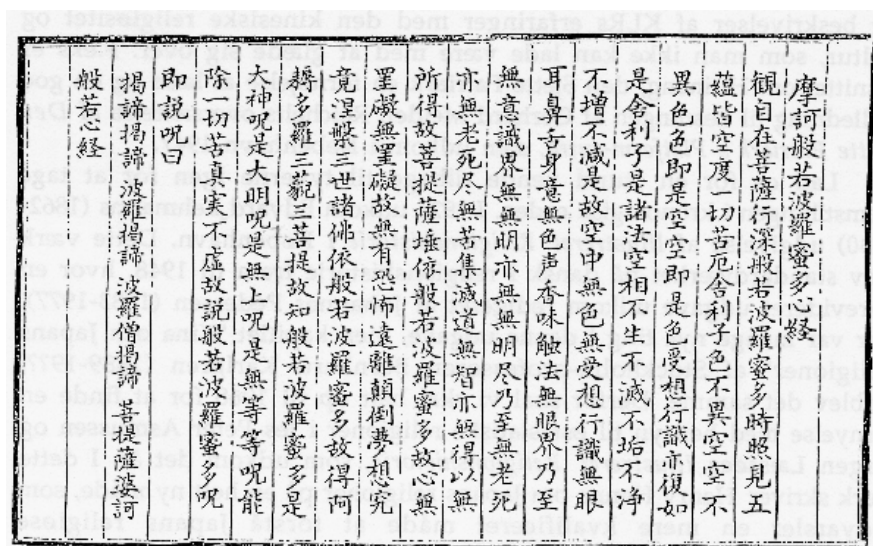 摩訶般若波羅蜜多心経
観自在菩薩行深般若波羅蜜多時照見五
蘊皆空度一切苦厄舎利子色不異空空不
異色色即是空空即是色受想行識亦復如
是舎利子是諸法空相不生不滅不垢不浄
不増不減是故空中無色無受想行識無眼
耳鼻舌身意無色声香味触法無眼界乃至
無意識界無無明亦無無明尽乃至無老死
亦無老死尽無苦集滅道無智亦無得以無
所得故菩提薩埵依般若波羅蜜多故心無
罣礙無罣礙故無有恐怖遠離顛倒夢想究
竟涅槃三世諸佛依般若波羅蜜多故得阿
耨多羅三藐三菩提故知般若波羅蜜多是
大神呪是大明呪是無上呪是無等等呪能
除一切苦真実不虚故説般若波羅蜜多呪
即説呪曰
揭諦揭諦 波羅揭諦 波羅僧揭諦 菩提薩婆訶
般若心経